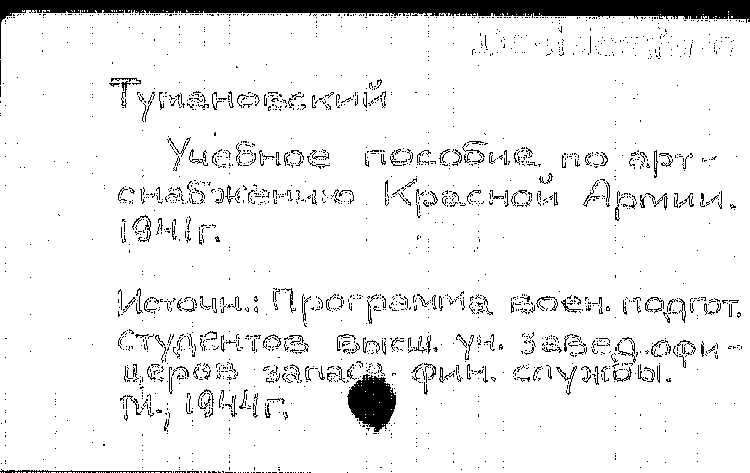 Тумановский
Учебное пособие по арт-
снабжению Красной Армии.
1941г.
Источн.: Программа воен. подгот.
студентов высш. уч. завед. офи-
церов запаса фин. службы.
М., 1944г.